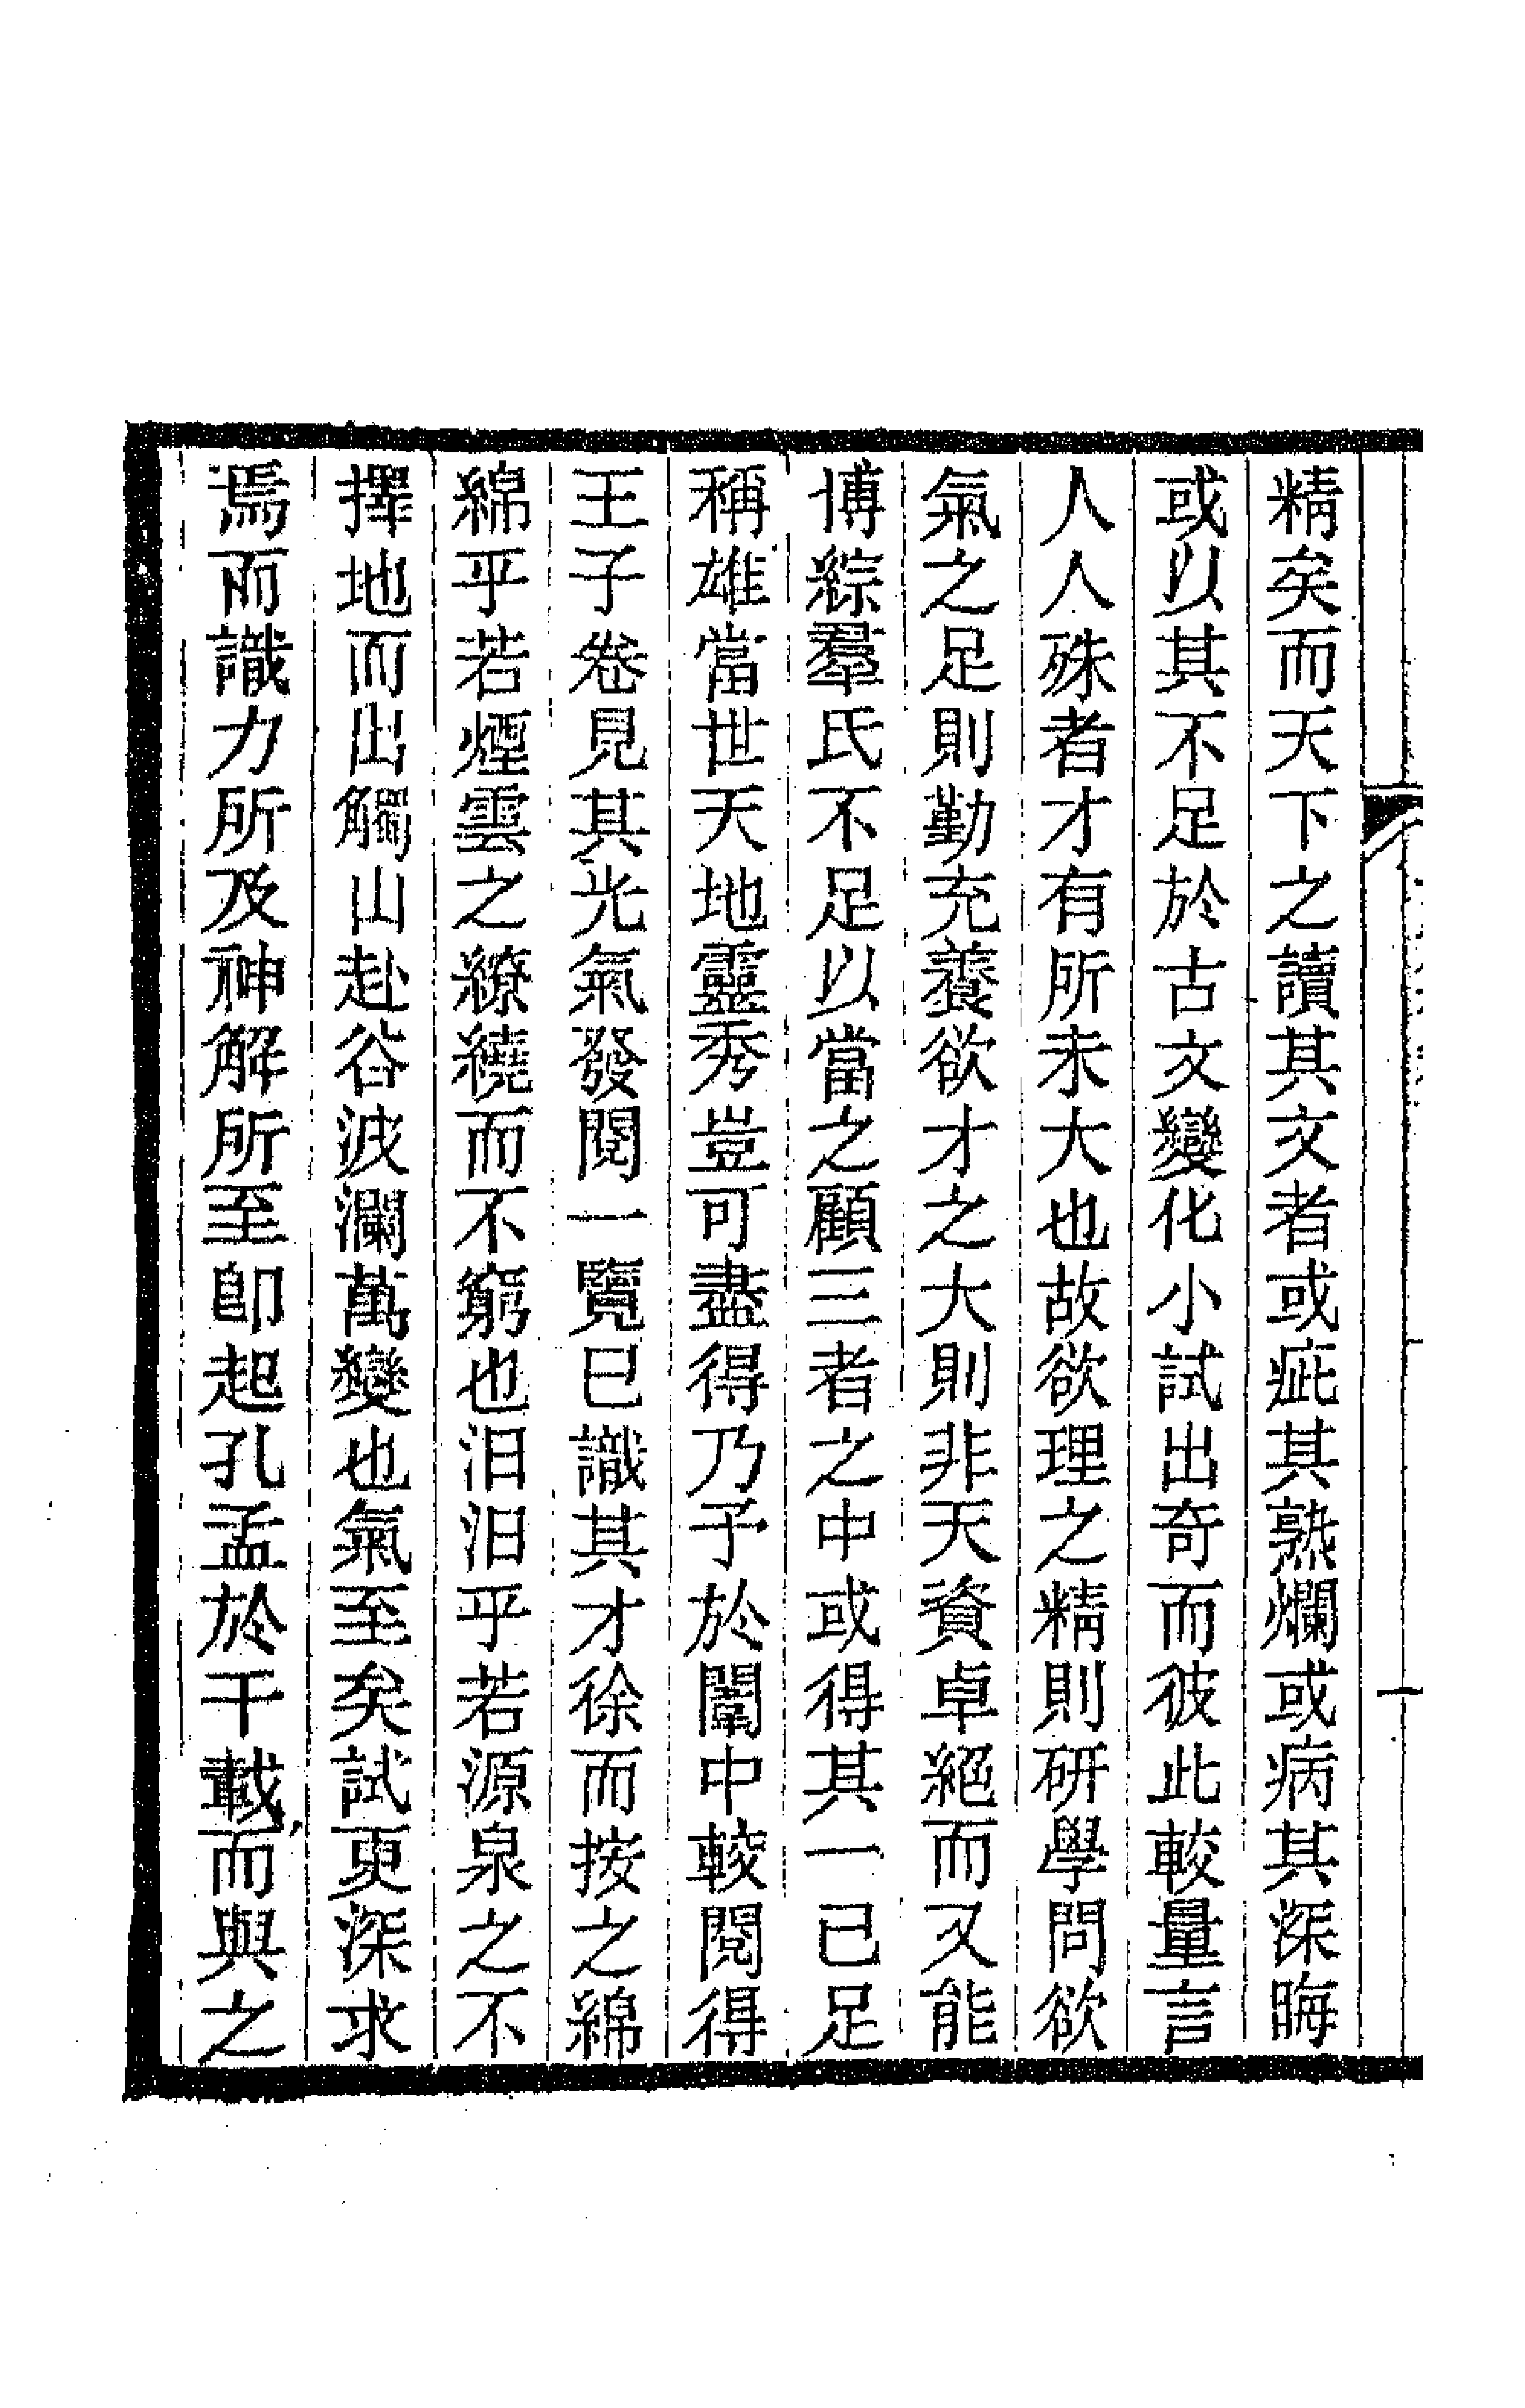 精矣而天下之讀其文者或疵其熟爛或病其深晦
或以其不足於古文變化小試出奇而彼此較量言
人人殊者才有所未大也故欲理之精則研學問欲
氣之足則勤充養欲才之大則非天資卓絕而又能
博綜羣氏不足以當之顧三者之中或得其一已足
稱雄當世天地靈秀豈可盡得乃予於闈中較閱得
王子卷見其光氣發閱一覽已識其才徐而按之綿
綿乎若煙雲之繚繞而不窮也汨汨乎若源泉之不
擇地而出觸山赴谷波瀾萬變也氣至矣試更深求
焉而識力所及神解所至卽起孔孟於千載而與之